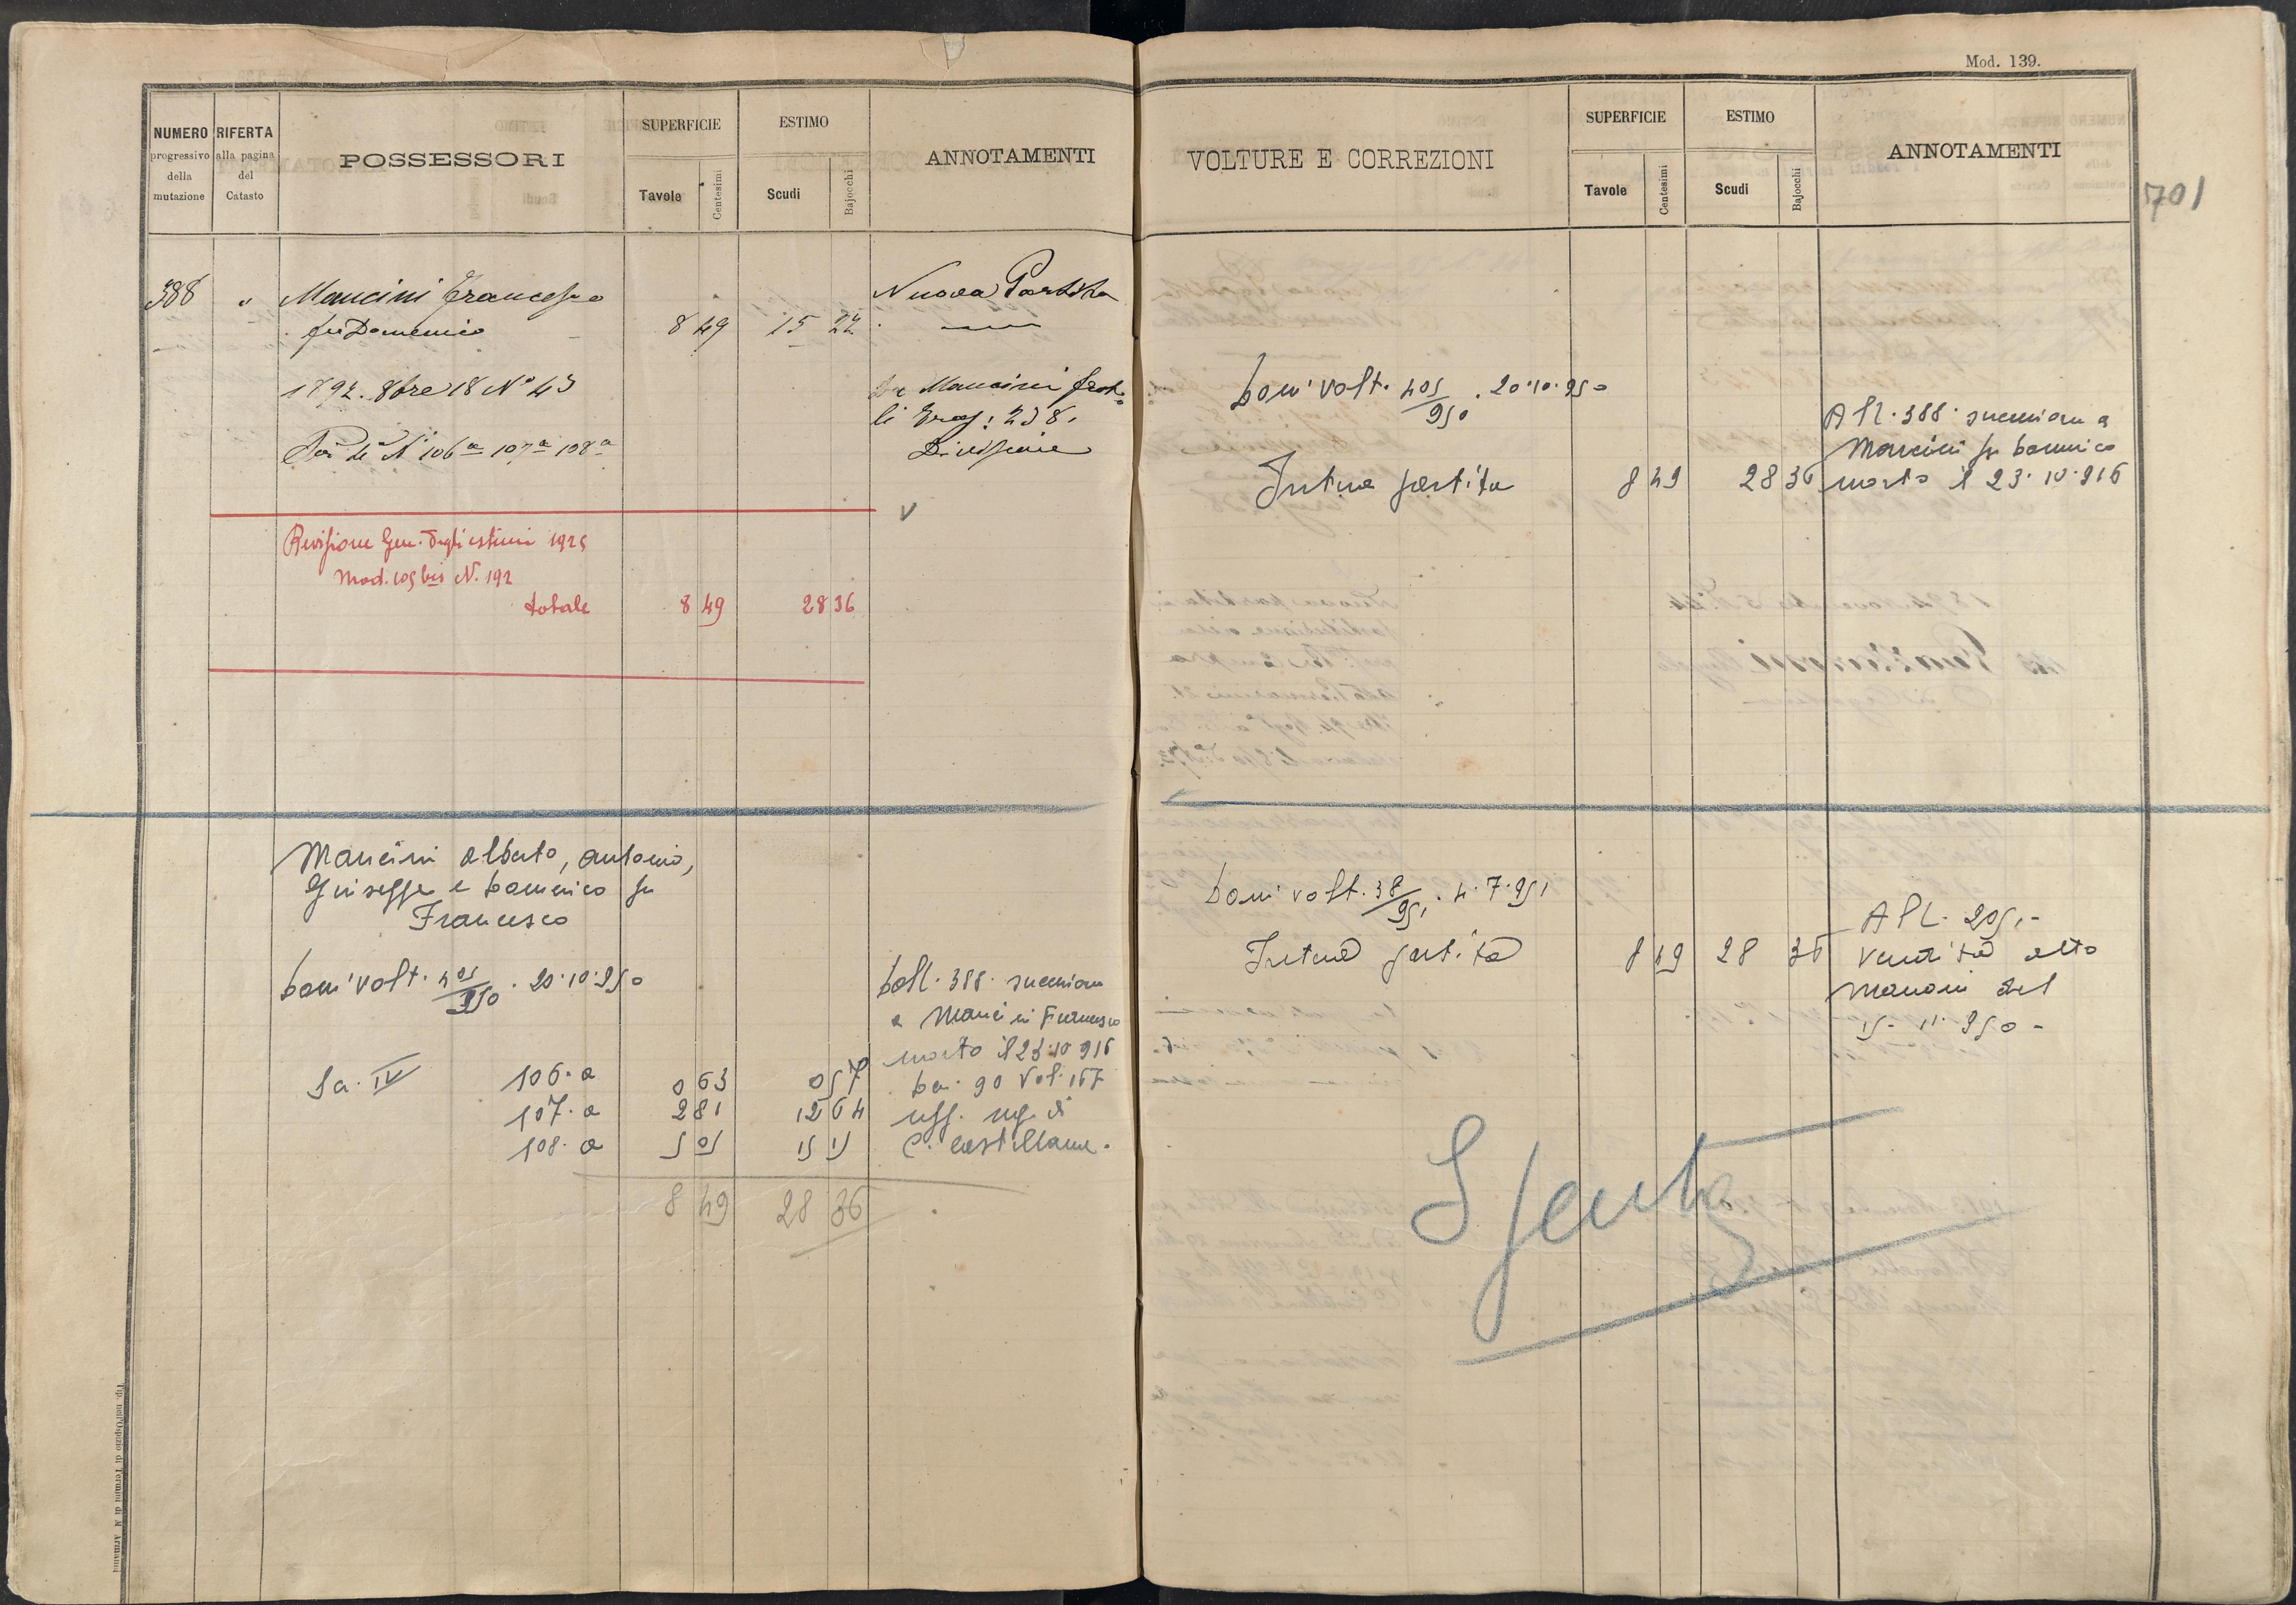 Mod. 139.
NUMERO progressivo della mutazione
RIFERTA alla pagina del Catasto
POSSESSORI
SUPERFICIE
Tavole
Centesimi
ESTIMO
Scudi
Bajocchi
ANNOTAMENTI
388 " Mancini Francesco Nuova Partita
fu Domenico 8 49 15 22
1892. 8bre 18 N° 43 Da Mancini frat.
li Prog: 238.
Divisione
106a 107a 108a
Revisione Gen. degli estimi 1925
Mod. 109 bis N. 192
totale 8 49 28 36
Mancini Alberto, Antonio,
Giuseppe e Domenico fu
Francesco
Dom volt. 405/950. 20.10.950 Dall. 388. successione
a Mancini Francesco
morto il 23.10.916
Sa. IV 106. a 0 63 0 57 Den. 90 Vol. 167
107. a 2 81 12 64 uff. reg. di
108. a 5 05 15 15 C. Castellana.
8 49 28 36
VOLTURE E CORREZIONI
SUPERFICIE
Tavole
Centesimi
ESTIMO
Scudi
Bajocchi
ANNOTAMENTI
701
Dom volt. 405/950. 20.10.950
Al. 388. successione a
Mancini fu Domenico
Intera partita 8 49 28 36 morto il 23.10.916
Dom volt. 38/951. 4.7.951
Al. 205.-
Intera partita 8 49 28 36 Vendita atto
del
15-11-950-
Spenta
Tip. nell'Ospizio di Termini di N. Armanni